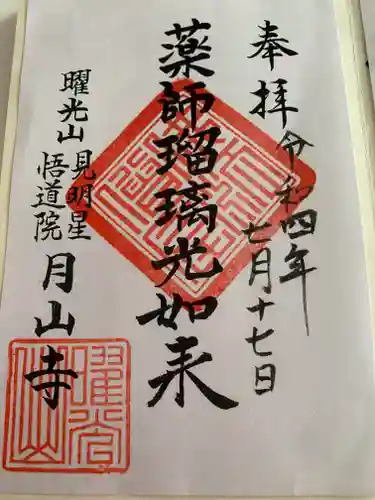 奉拝
令和四年
七月十七日
薬師瑠璃光如来
曜光山
見明星
悟道院
月山寺